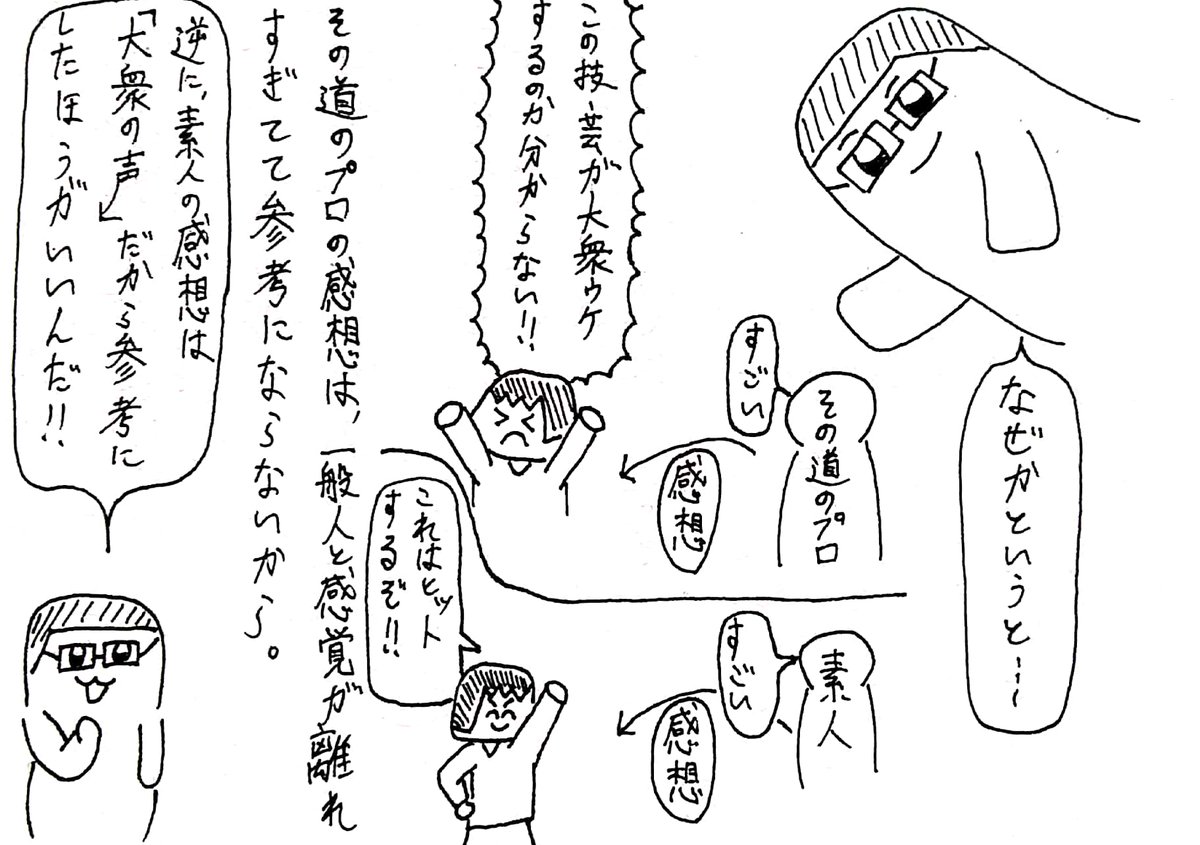 なぜかというと…
その道のプロ
すごい
感想
この技・芸が大衆ウケ
するのか分からない!!
素人
すごい
感想
これはヒット
するぞ!!
その道のプロの感想は、一般人と感覚が離れ
すぎてて参考にならないから。
逆に、素人の感想は
「大衆の声」だから参考に
したほうがいいんだ!!